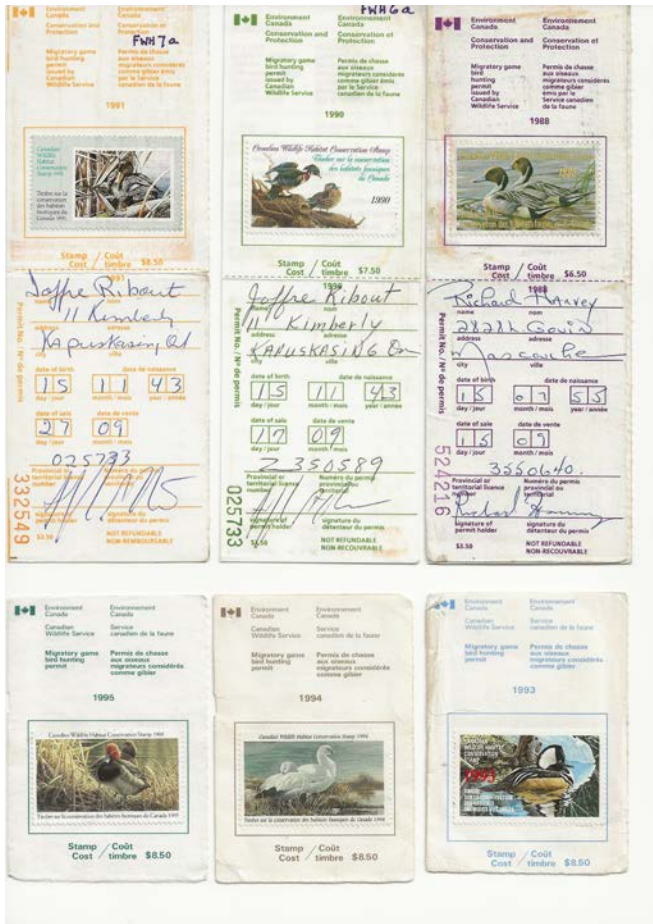 Environment
Canada
Environnement
Canada
Conservation and
Protection
Conservation et
Protection
FWH7a
Migratory game
bird hunting
permit
issued by
Canadian
Wildlife Service
Permis de chasse
aux oiseaux
migrateurs considérés
comme gibier émis
par le Service
canadien de la faune
1991
Canadian
Wildlife
Habitat
Conservation
Stamp 1991
Timbre sur la
conservation
des habitats
fauniques du
Canada 1991
Stamp / Coût
Cost / timbre $8.50
1991
Joffre Ribout
name nom
11 Kimberly
address adresse
Kapuskasing, Ot
city ville
Permit No. / Nº de permis
date of birth date de naissance
15 11 43
day / jour month / mois year / année
date of sale date de vente
27 09
day / jour month / mois
025733
Provincial or
territorial licence
number
Numéro du permis
provincial ou
territorial
332549
signature of
permit holder
signature du
détenteur du permis
$3.50 NOT REFUNDABLE
NON-REMBOURSABLE
FWH6a
Environment
Canada
Environnement
Canada
Conservation and
Protection
Conservation et
Protection
Migratory game
bird hunting
permit
issued by
Canadian
Wildlife Service
Permis de chasse
aux oiseaux
migrateurs considérés
comme gibier émis
par le Service
canadien de la faune
1990
Canadian Wildlife Habitat Conservation Stamp
Timbre sur la conservation
des habitats fauniques
du Canada
1990
Stamp / Coût
Cost / timbre $7.50
1990
Joffre Ribout
name nom
11 Kimberly
address adresse
KAPUSKASING On
city ville
Permit No. / Nº de permis
date of birth date de naissance
15 11 43
day / jour month / mois year / année
date of sale date de vente
17 09
day / jour month / mois
2350589
Provincial or
territorial licence
number
Numéro du permis
provincial ou
territorial
025733
signature of
permit holder
signature du
détenteur du permis
$3.50 NOT REFUNDABLE
NON-RECOUVRABLE
Environment
Canada
Environnement
Canada
Conservation and
Protection
Conservation et
Protection
Migratory game
bird
hunting
permit
issued by
Canadian
Wildlife Service
Permis de chasse
aux oiseaux
migrateurs considérés
comme gibier
émis par le
Service canadien
de la faune
1988
Stamp / Coût
Cost / timbre $6.50
1988
Richard Harvey
name nom
2828 Gouin
address adresse
Mascouche
city ville
Permit No. / Nº de permis
date of birth date de naissance
15 07 55
day / jour month / mois year / année
date of sale date de vente
15 09
day / jour month / mois
3550640.
Provincial or
territorial licence
number
Numéro du permis
provincial ou
territorial
524216
Richard Harvey
signature of
permit holder
signature du
détenteur du permis
$3.50 NOT REFUNDABLE
NON-RECOUVRABLE
Environment
Canada
Environnement
Canada
Canadian
Wildlife Service
Service
canadien de la faune
Migratory game
bird hunting
permit
Permis de chasse
aux oiseaux
migrateurs considérés
comme gibier
1995
Canadian Wildlife Habitat Conservation Stamp 1995
Timbre sur la conservation des habitats fauniques du Canada 1995
Stamp / Coût
Cost / timbre $8.50
Environment
Canada
Environnement
Canada
Canadian
Wildlife Service
Service
canadien de la faune
Migratory game
bird hunting
permit
Permis de chasse
aux oiseaux
migrateurs considérés
comme gibier
1994
Canadian Wildlife Habitat Conservation Stamp 1994
Timbre sur la conservation des habitats fauniques du Canada 1994
Stamp / Coût
Cost / timbre $8.50
Environment
Canada
Environnement
Canada
Canadian
Wildlife Service
Service
canadien de la faune
Migratory game
bird hunting
permit
Permis de chasse
aux oiseaux
migrateurs considérés
comme gibier
1993
CANADIAN
WILDLIFE HABITAT
CONSERVATION
STAMP
1993
Stamp / Coût
Cost / timbre $8.50